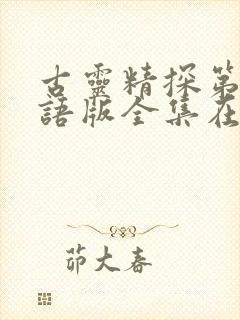 古靈精探第
語版全集在
茆大春